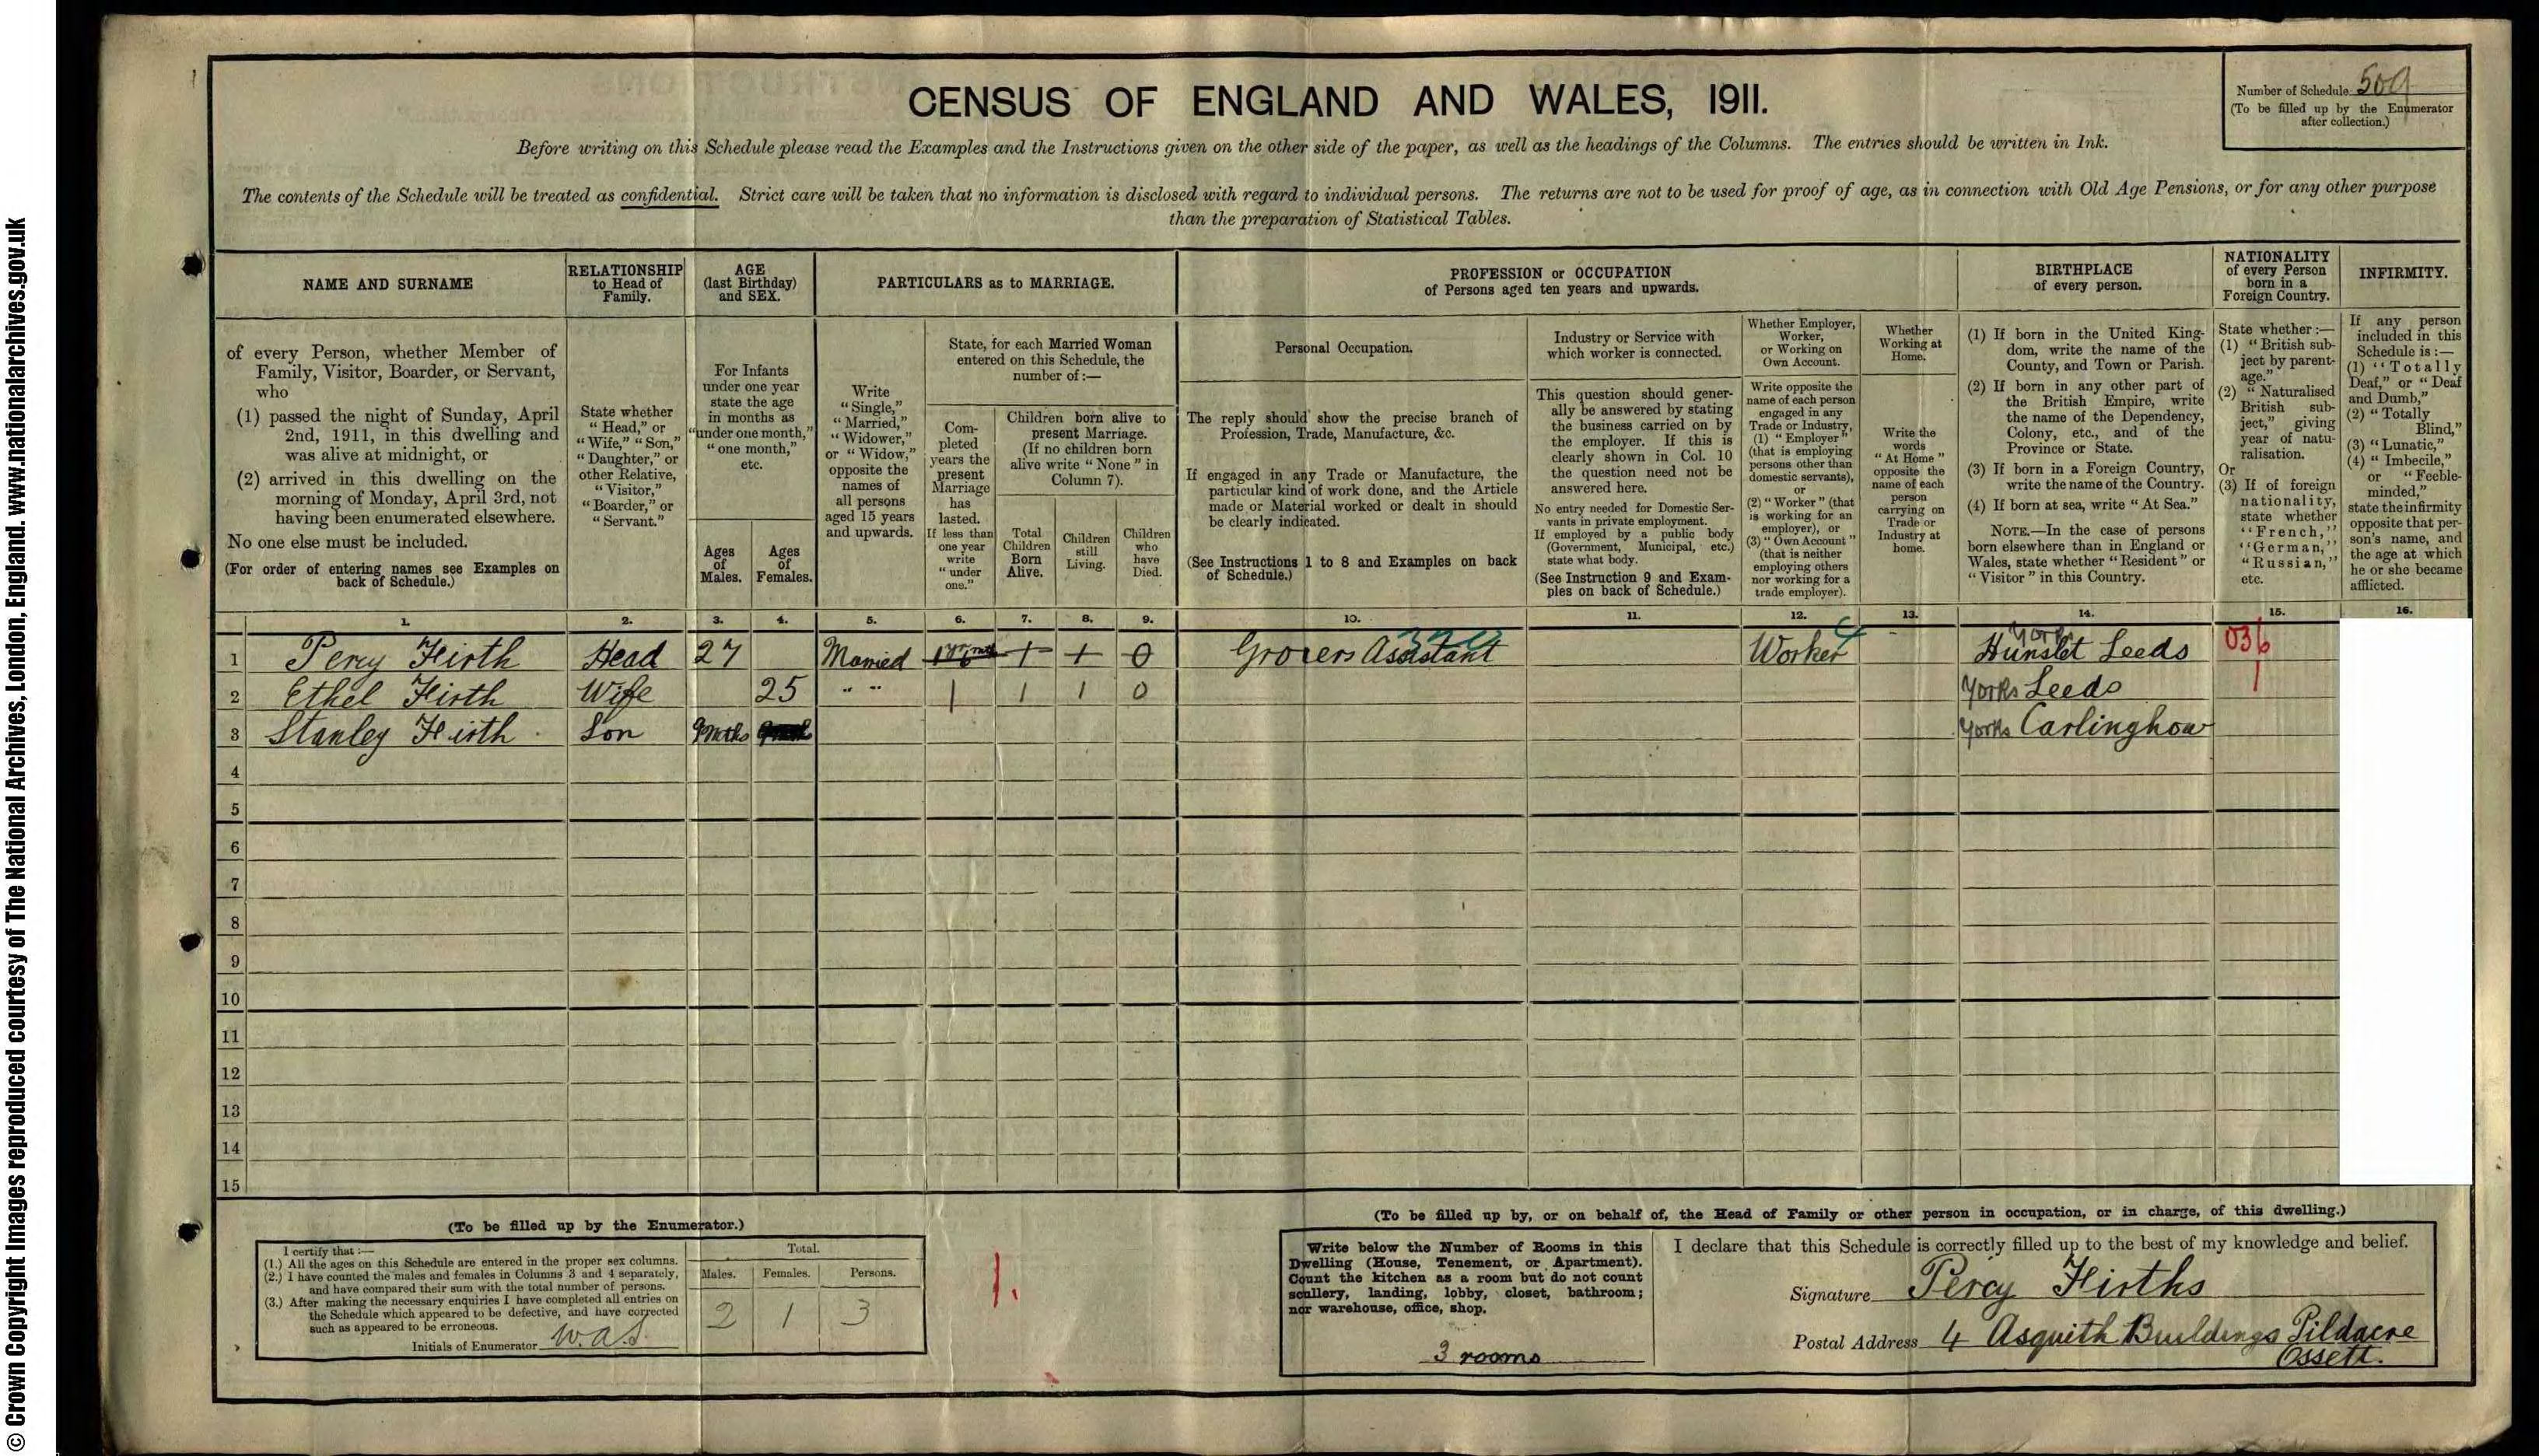 © Crown Copyright Images reproduced courtesy of The National Archives, London, England. www.nationalarchives.gov.uk
CENSUS OF ENGLAND AND WALES, 1911.
Number of Schedule 509
(To be filled up by the Enumerator
after collection.)
Before writing on this Schedule please read the Examples and the Instructions given on the other side of the paper, as well as the headings of the Columns. The entries should be written in Ink.
The contents of the Schedule will be treated as confidential. Strict care will be taken that no information is disclosed with regard to individual persons. The returns are not to be used for proof of age, as in connection with Old Age Pensions, or for any other purpose
than the preparation of Statistical Tables.
NAME AND SURNAME
of every Person, whether Member of
Family, Visitor, Boarder, or Servant,
who
(1) passed the night of Sunday, April
2nd, 1911, in this dwelling and
was alive at midnight, or
(2) arrived in this dwelling on the
morning of Monday, April 3rd, not
having been enumerated elsewhere.
No one else must be included.
(For order of entering names see Examples on
back of Schedule.)
RELATIONSHIP
to Head of
Family.
State whether
"Head," or
"Wife," "Son,"
"Daughter," or
other Relative,
"Visitor,"
"Boarder," or
"Servant."
AGE
(last Birthday)
and SEX.
For Infants
under one year
state the age
in months as
"under one month,"
"one month,"
etc.
Ages
of
Males.
Ages
of
Females.
PARTICULARS as to MARRIAGE.
Write
"Single,"
"Married,"
"Widower,"
or "Widow,"
opposite the
names of
all persons
aged 15 years
and upwards.
State, for each Married Woman
entered on this Schedule, the
number of :—
Com-
pleted
years the
present
Marriage
has
lasted.
If less than
one year
write
"under
one."
Children born alive to
present Marriage.
(If no children born
alive write "None" in
Column 7).
Total
Children
Born
Alive.
Children
still
Living.
Children
who
have
Died.
PROFESSION or OCCUPATION
of Persons aged ten years and upwards.
Personal Occupation.
The reply should show the precise branch of
Profession, Trade, Manufacture, &c.
If engaged in any Trade or Manufacture, the
particular kind of work done, and the Article
made or Material worked or dealt in should
be clearly indicated.
(See Instructions 1 to 8 and Examples on back
of Schedule.)
Industry or Service with
which worker is connected.
This question should gener-
ally be answered by stating
the business carried on by
the employer. If this is
clearly shown in Col. 10
the question need not be
answered here.
No entry needed for Domestic Ser-
vants in private employment.
If employed by a public body
(Government, Municipal, etc.)
state what body.
(See Instruction 9 and Exam-
ples on back of Schedule.)
Whether Employer,
Worker,
or Working on
Own Account.
Write opposite the
name of each person
engaged in any
Trade or Industry,
(1) "Employer"
(that is employing
persons other than
domestic servants),
or
(2) "Worker" (that
is working for an
employer), or
(3) "Own Account"
(that is neither
employing others
nor working for a
trade employer).
Whether
Working at
Home.
Write the
words
"At Home"
opposite the
name of each
person
carrying on
Trade or
Industry at
home.
BIRTHPLACE
of every person.
(1) If born in the United King-
dom, write the name of the
County, and Town or Parish.
(2) If born in any other part of
the British Empire, write
the name of the Dependency,
Colony, etc., and of the
Province or State.
(3) If born in a Foreign Country,
write the name of the Country.
(4) If born at sea, write "At Sea."
NOTE.—In the case of persons
born elsewhere than in England or
Wales, state whether "Resident" or
"Visitor" in this Country.
NATIONALITY
of every Person
born in a
Foreign Country.
State whether :—
(1) "British sub-
ject by parent-
age."
(2) "Naturalised
British sub-
ject," giving
year of natu-
ralisation.
Or
(3) If of foreign
nationality,
state whether
"French,"
"German,"
"Russian,"
etc.
INFIRMITY.
If any person
included in this
Schedule is :—
(1) "Totally
Deaf," or "Deaf
and Dumb,"
(2) "Totally
Blind,"
(3) "Lunatic,"
(4) "Imbecile,"
or "Feeble-
minded,"
state the infirmity
opposite that per-
son's name, and
the age at which
he or she became
afflicted.
1. 2. 3. 4. 5. 6. 7. 8. 9. 10. 11. 12. 13. 14. 15. 16.
1 Percy Firth Head 27 Married 1 1 0 Grocers Assistant Worker Yorks Hunslet Leeds 036
2 Ethel Firth Wife 25 " " 1 1 1 0 Yorks Leeds 1
3 Stanley Firth Son 9 mths Yorks Carlinghow
4
5
6
7
8
9
10
11
12
13
14
15
(To be filled up by the Enumerator.)
I certify that :—
(1.) All the ages on this Schedule are entered in the proper sex columns.
(2.) I have counted the males and females in Columns 3 and 4 separately,
and have compared their sum with the total number of persons.
(3.) After making the necessary enquiries I have completed all entries on
the Schedule which appeared to be defective, and have corrected
such as appeared to be erroneous.
Initials of Enumerator W.A.S.
Total.
Males. Females. Persons.
2 1 3
1.
(To be filled up by, or on behalf of, the Head of Family or other person in occupation, or in charge, of this dwelling.)
Write below the Number of Rooms in this
Dwelling (House, Tenement, or Apartment).
Count the kitchen as a room but do not count
scullery, landing, lobby, closet, bathroom;
nor warehouse, office, shop.
3 rooms
I declare that this Schedule is correctly filled up to the best of my knowledge and belief.
Signature Percy Firths
Postal Address 4 Asquith Buildings Pildacre
Ossett.